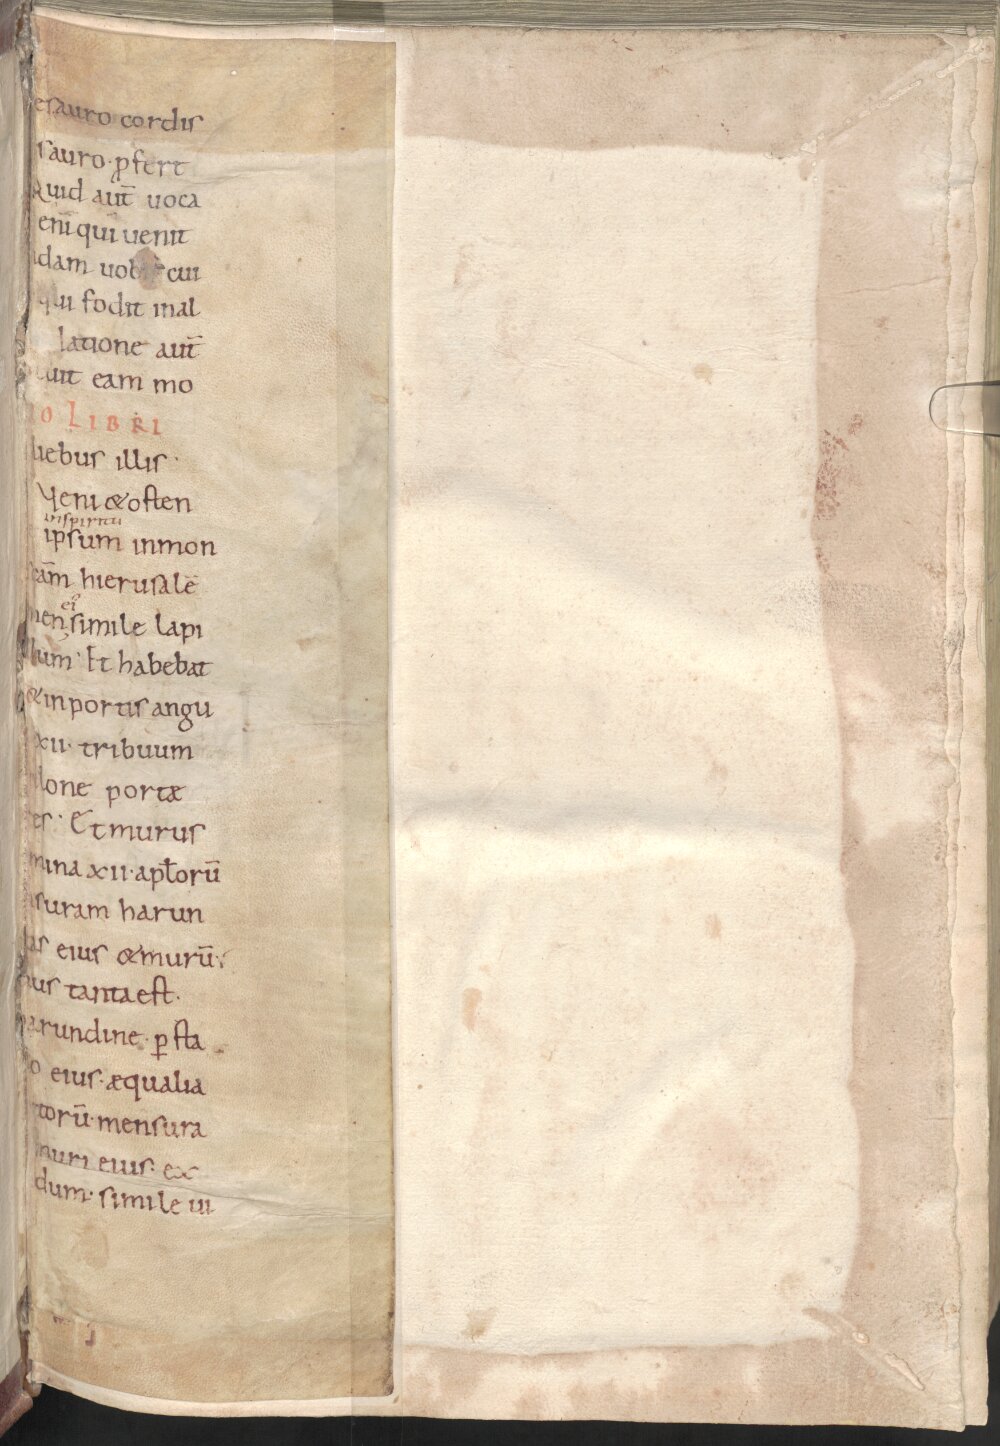 esauro cordis
sauro · ꝓfert
Quid aut̄ uoca
enī qui uenit
dam uobis cui
qui fodit in al
latione aut̄
tuit eam mo
IO LIBRI
diebus illis ·
Veni & osten
in spiritu
ipsum in mon
cām hierusalē
ei
men simile lapi
lum · Et habebat
& in portis angu
xii · tribuum
lone portæ
res · Et murus
mina xii · aptoru̅
nsuram harun
tas eius & muru̅ ·
nus tanta est ·
arundine · ꝑ sta
o eius · æqualia
toru̅ · mensura
muri eius · ex
dum · simile ui